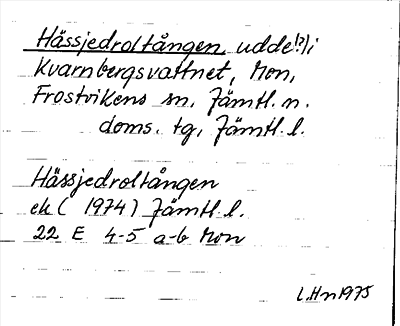 Hässjedroltången, udde(?) i
Kvarnbergsvattnet, Mon,
Frostvikens sn, Jämtl. n.
doms. tg, Jämtl. l.
Hässjedroltången
ek ( 1974) Jämtl. l.
22 E 4-5 a-b Mon
L.Hn 1975